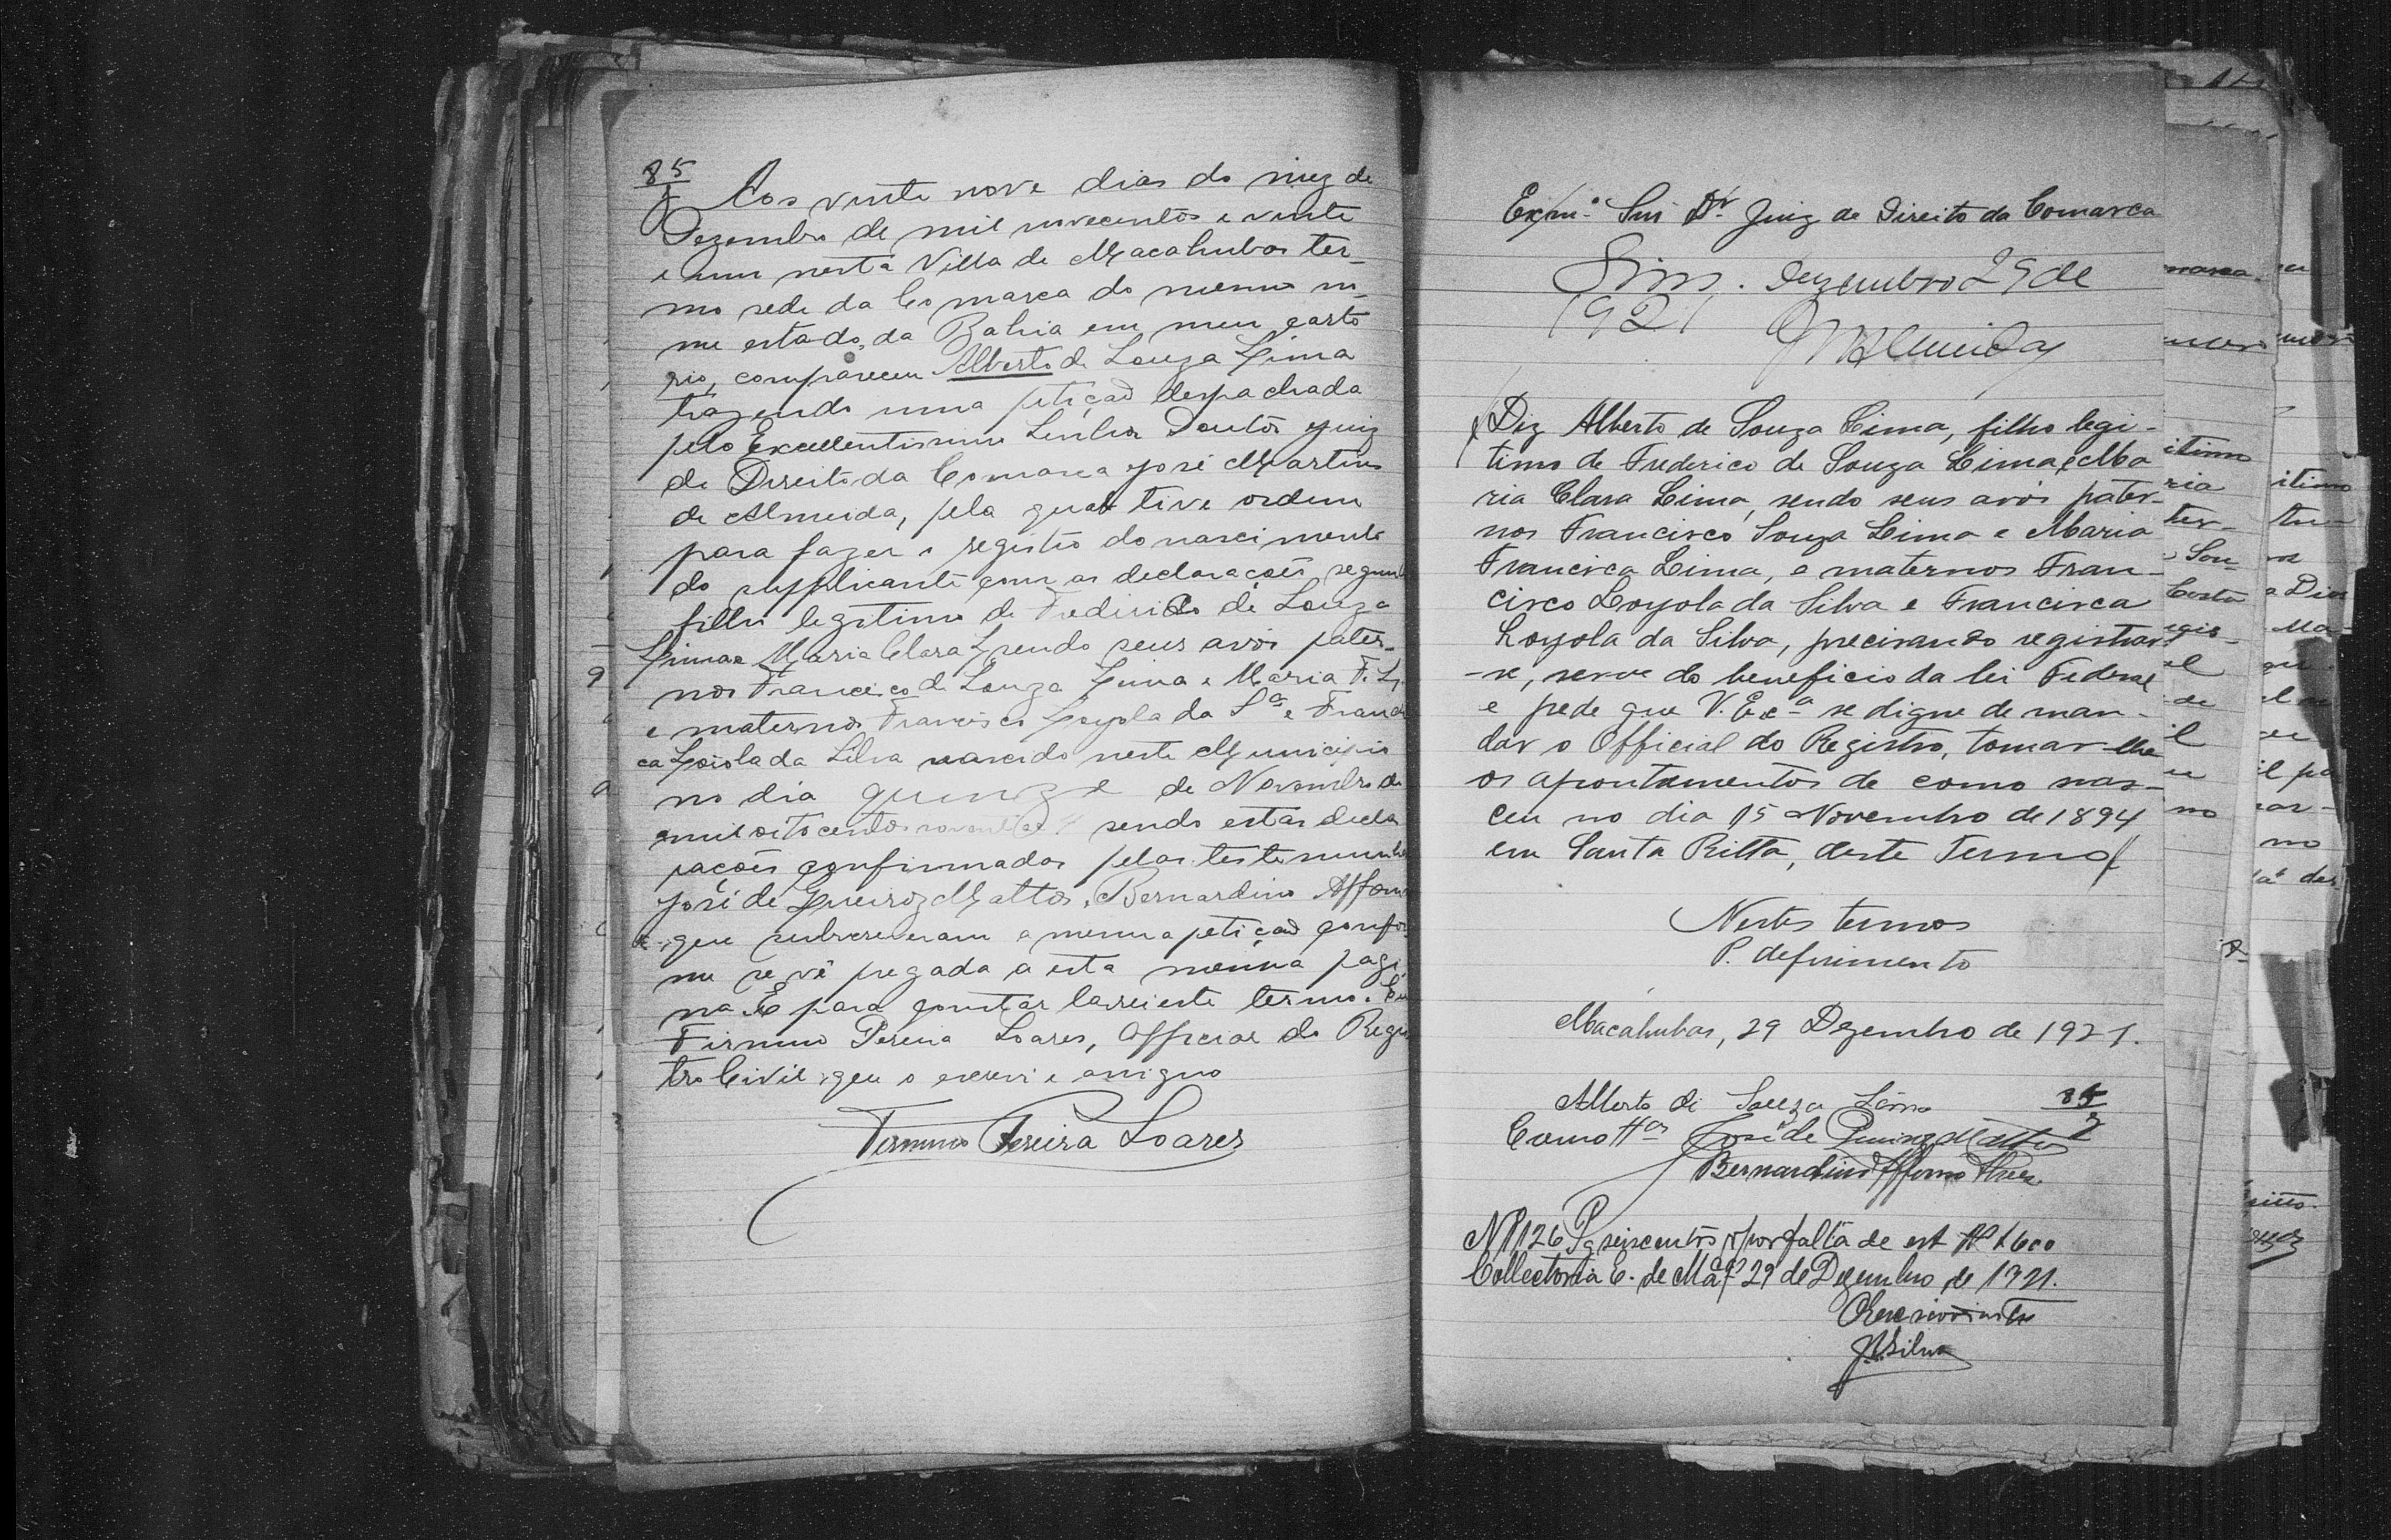 85
1
Aos vinte nove dias do mez de
Dezembro de mil novecentos e vinte
e um nesta Villa de Macahubas ter-
mo sede da Comarca do mesmo no-
me estado da Bahia em meu carto
rio, compareceu Alberto de Souza Lima
trazendo uma petição despachada
pelo Excellentissimo Senhor Doutor Juiz
de Direito da Comarca José Martins
de Almeida, pela qual tive ordem
para fazer o registro do nascimento
do supplicante com as declarações segui
filho legitimo de Frederico de Souza
Lima e Maria Clara L. sendo seus avós pater-
nos Francisco de Souza Lima e Maria F. L.
e maternos Francisco Loyola da Sª e Francis
ca Loiola da Silva nascido neste Municipio
no dia quinze de Novembro de
mil oito centos noventa e 4 sendo estas decla
rações confirmadas pelas testemunhas
José de Queiroz Mattos, Bernardino Affonso
que subscreveram a mesma petição confor
me se vê pregada a esta mesma pagi
na. E para constar lavrei este termo. Eu
Firmino Pereira Soares, Official do Regis
tro Civil, que o escrevi e assigno
Firmino Pereira Soares
Exmº Snr Dr Juiz de Direito da Comarca
Sim. Dezembro 29 de
1921
JMAlmeida
Diz Alberto de Souza Lima, filho legi-
timo de Frederico de Souza Lima e Ma
ria Clara Lima, sendo seus avós pater-
nos Francisco Souza Lima e Maria
Francisca Lima, e maternos Fran-
cisco Loyola da Silva e Francisca
Loyola da Silva, precisando registrar
-se, serve do beneficio da lei Federal
e pede que V. Excª se digne de man-
dar o Official do Registro, tomar-lhe
os apontamentos de como nas-
ceu no dia 15 Novembro de 1894
em Santa Ritta, deste Termo
Nestes termos
P. deferimento
Macahubas, 29 Dezembro de 1921.
Alberto di Souza Lima
85
2
Como ttas José de Queiroz Mattos
Bernardino Affonso
Nº 126 Pg seiscentos rs por falta de est
Collectoria E. de Macas 29 de Dezembro de 1921.
Silva